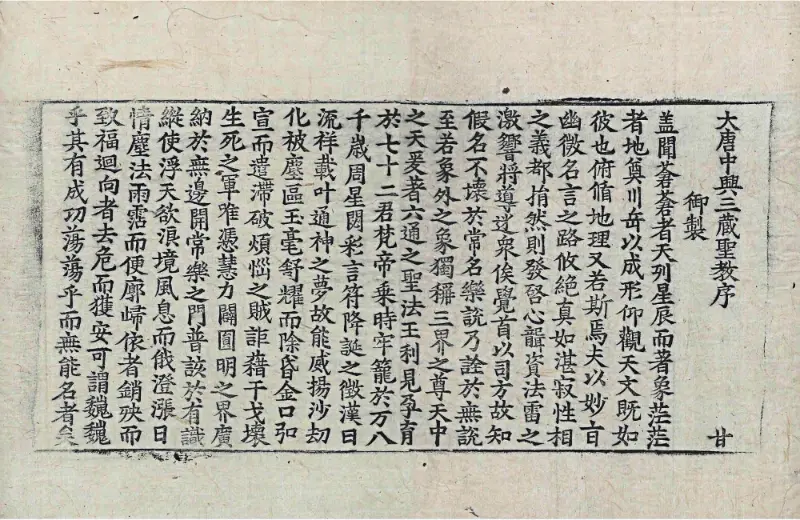 大唐中興三藏聖教序 甘
御製
盖聞蒼蒼者天列星辰而著象茫茫
者地奠川岳以成形仰觀天文旣如
彼也俯循地理又若斯焉夫以妙旨
幽微名言之路攸絶真如湛寂性相
之義都捐然則發啓心聾資法雷之
激響將導迷衆俟覺首以司方故知
假名不壞於常名樂說乃詮於無說
至若象外之象獨稱三界之尊天中
之天爰著六通之聖法王利見孕育
於七十二君梵帝乗時牢籠於万八
千歳周星閟彩言符降誕之徵漢日
流祥載叶通神之夢故能威揚沙刼
化被塵區玉毫舒耀而除昏金口弘
宣而遣滯破煩惱之賊詎藉干戈壞
生死之軍唯憑慧力闢圓明之界廣
納於無邊開常樂之門普該於有識
縱使浮天欲浪境風息而俄澄漲日
情塵法雨霑而便廓歸依者銷殃而
致福迴向者去危而獲安可謂巍巍
乎其有成功蕩蕩乎而無能名者矣